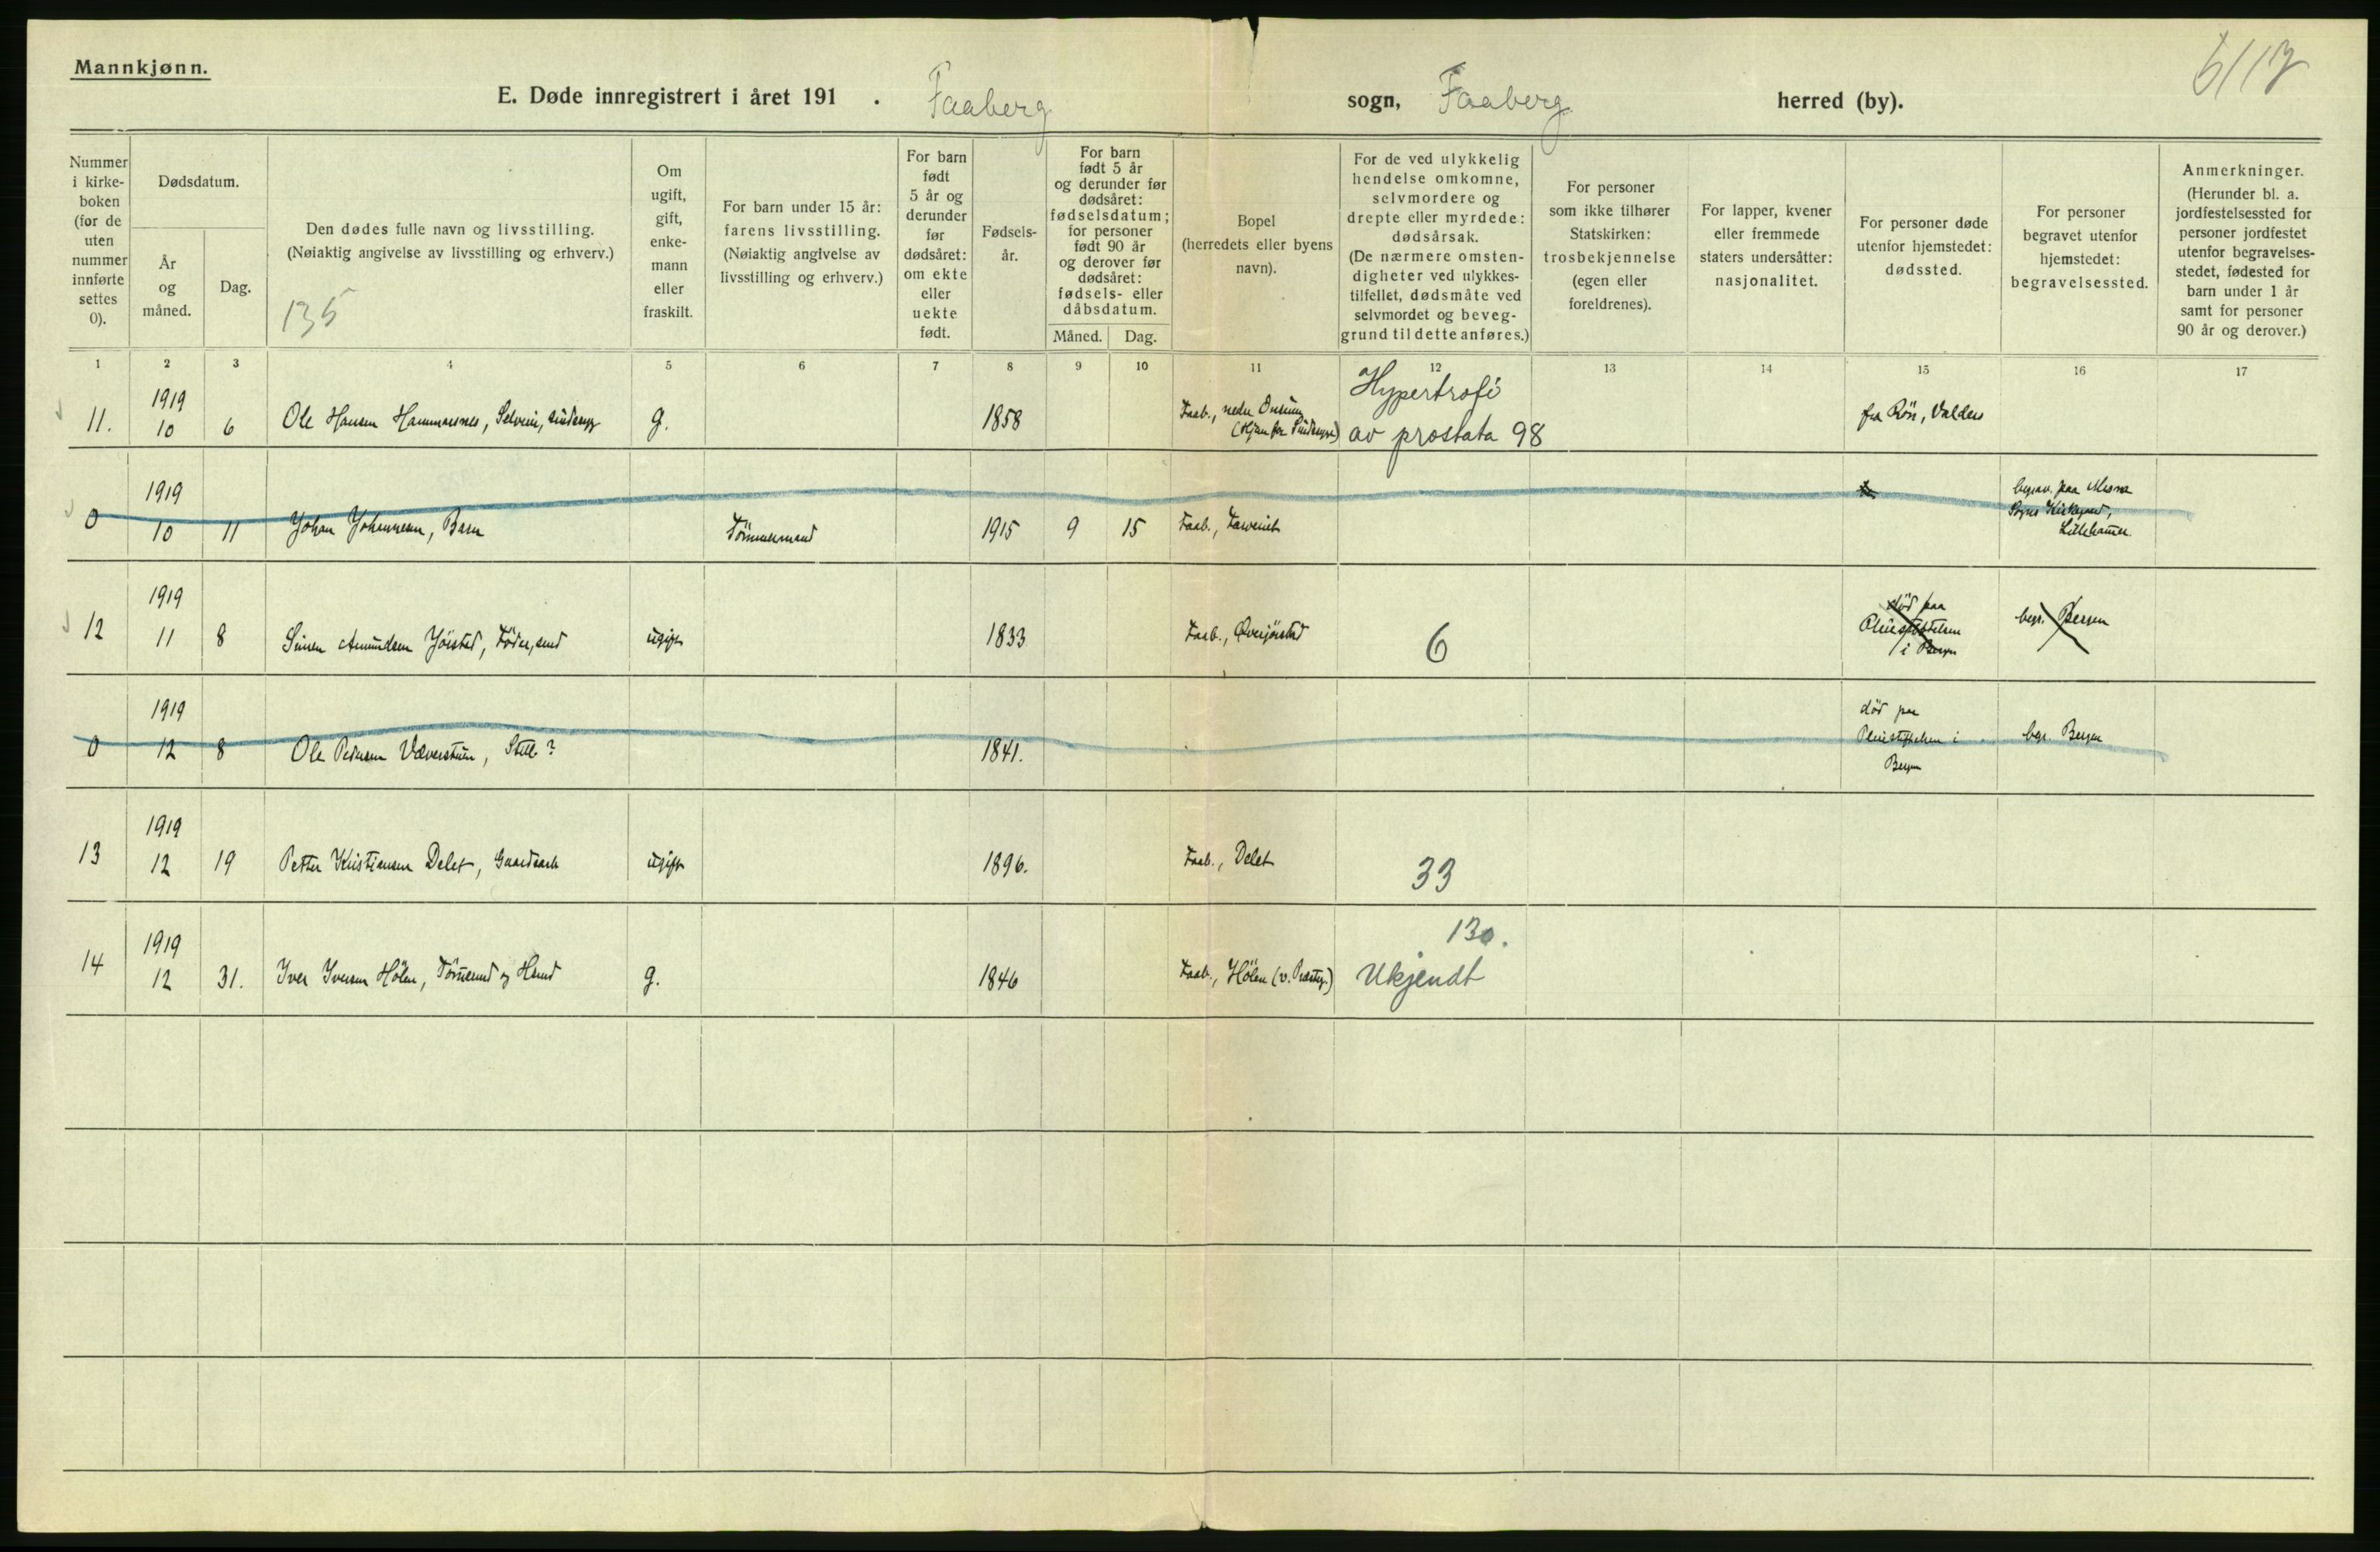 Mannkjønn.
6/17
E. Døde innregistrert i året 191 . Faaberg sogn, Faaberg herred (by).
Nummer i kirke- boken (for de uten nummer innførte settes 0).
Dødsdatum.
År og måned.
Dag.
Den dødes fulle navn og livsstilling.
(Nøiaktig angivelse av livsstilling og erhverv.)
135
Om ugift, gift, enke- mann eller fraskilt.
For barn under 15 år: farens livsstilling.
(Nøiaktig angivelse av livsstilling og erhverv.)
For barn født 5 år og derunder før dødsåret: om ekte eller uekte født.
Fødsels- år.
For barn født 5 år og derunder før dødsåret: fødselsdatum; for personer født 90 år og derover før dødsåret: fødsels- eller dåbsdatum.
Måned. Dag.
Bopel (herredets eller byens navn).
For de ved ulykkelig hendelse omkomne, selvmordere og drepte eller myrdede: dødsårsak.
(De nærmere omsten- digheter ved ulykkes- tilfellet, dødsmåte ved selvmordet og beveg- grund til dette anføres.)
For personer som ikke tilhører Statskirken: trosbekjennelse (egen eller foreldrenes).
For lapper, kvener eller fremmede staters undersåtter: nasjonalitet.
For personer døde utenfor hjemstedet: dødssted.
For personer begravet utenfor hjemstedet: begravelsessted.
Anmerkninger.
(Herunder bl. a. jordfestelsessted for personer jordfestet utenfor begravelses- stedet, fødested for barn under 1 år samt for personer 90 år og derover.)
1 2 3 4 5 6 7 8 9 10 11 12 13 14 15 16 17
11. 1919 10 6 Ole Hansen Hammarsnes, Selveier, g. 1858 Faab., nedre Hypertrofi av prostata 98 fra Røn, Valders
0 1919 10 11 Johan Johannesen, Barn Tømmermand 1915 9 15 Faab., begrav. paa Mesna Sogns Kirkegaard, Lillehammer.
12 1919 11 8 Simen Amundsen Jørstad, ugift 1833 Faab., Øverjørstad 6 død paa Pleiestiftelsen i Bergen begr. Bergen
0 1919 12 8 Ole Pedersen Væverstuen, Still? 1841. død paa Pleiestiftelsen i Bergen begr. Bergen
13 1919 12 19 Petter Kristiansen Delet, Gaardsarb ugift 1896. Faab., Delet 33
14 1919 12 31. Iver Iversen Hølen, Tømmermd og Husmd g. 1846 Faab., Hølen (v. Præstg.) 130. Ukjendt